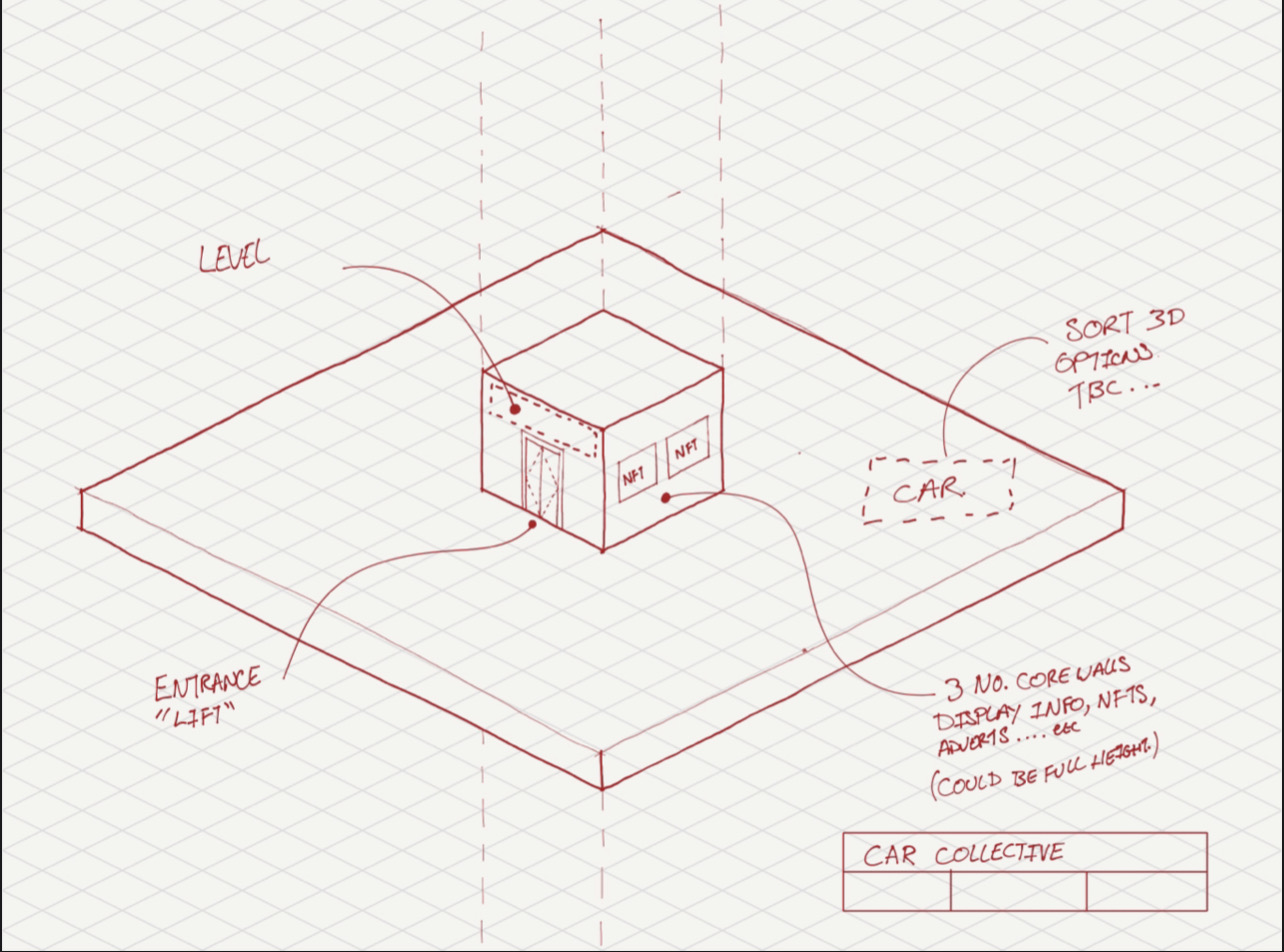 LEVEL
SORT 3D
OPTIONS
TBC...
NFT
NFT
CAR.
ENTRANCE
"LIFT"
3 NO. CORE WALLS
DISPLAY INFO, NFTS,
ADVERTS .... etc
(COULD BE FULL HEIGHT.)
CAR COLLECTIVE